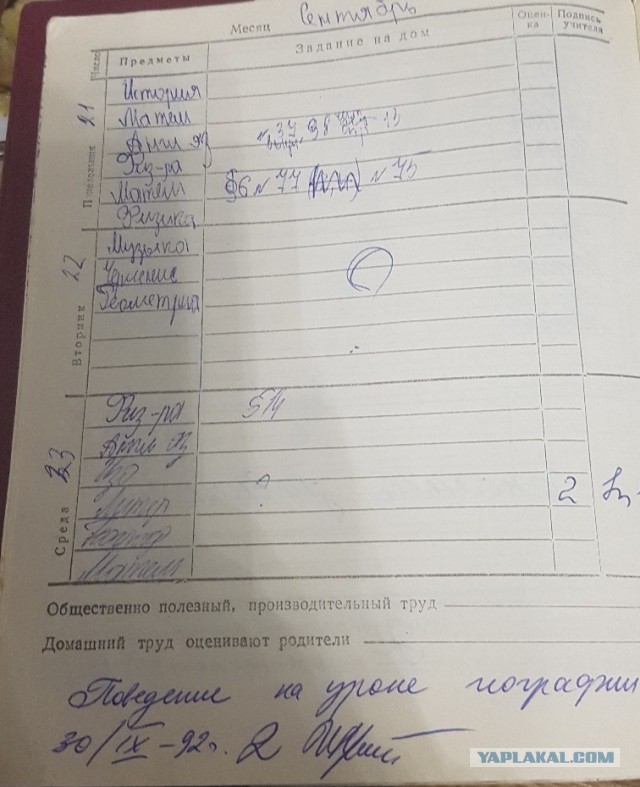 Месяц Сентябрь
Число Предметы Задание на дом Оцен-ка Подпись учителя
Понедельник 21
История
Матем
Англ яз № 37 38 13
Физ-ра
Матем §6 № 77 № 75
Физика
Вторник 22
Музыка
Черчение
Геометрия
Среда 23
Физ-ра
Англ яз
Изо
Литер 2
Матем
Общественно полезный, производительный труд
Домашний труд оценивают родители
Поведение на уроке географии
30/IX-92г. 2
YAPLAKAL.COM